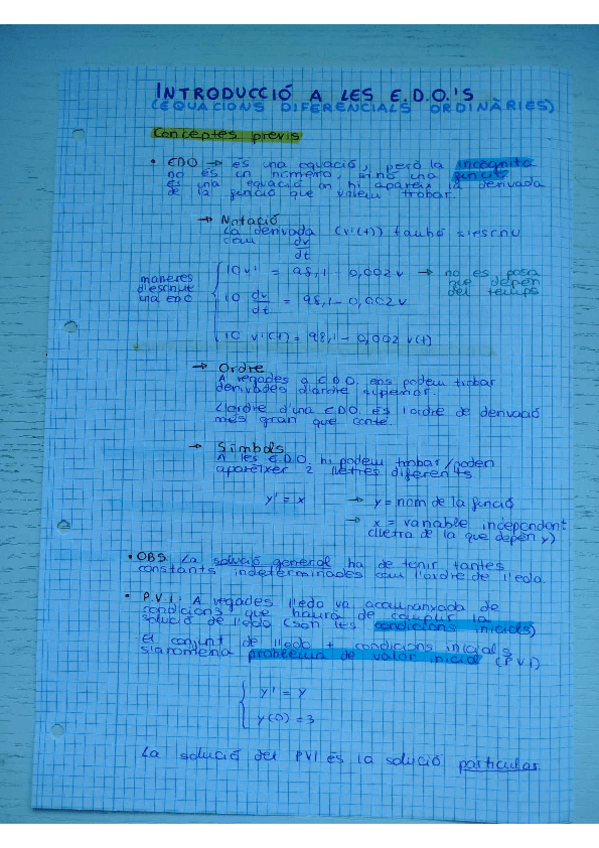 INTRODUCCIÓ A LES E.D.O.'S
(EQUACIONS DIFERENCIALS ORDINÀRIES)
Conceptes previs
• EDO → és una equació, però la incògnita
no és un número, sinó una funció
És una equació on hi apareix la derivada
de la funció que volem trobar.
→ Notació
La derivada (v'(t)) també s'escriu
com dv/dt
maneres d'escriure una EDO
10v' = 98,1 - 0,002v → no es posa que depèn del temps
10 dv/dt = 98,1 - 0,002v
10 v'(t) = 98,1 - 0,002 v(t)
→ Ordre
A vegades a E.D.O. ens podem trobar
derivades d'ordre superior.
L'ordre d'una EDO és l'ordre de derivació
més gran que conté.
→ Símbols
A les E.D.O. hi podem trobar/poden
aparèixer 2 lletres diferents
y' = x → y = nom de la funció
→ x = variable independent
(lletra de la que depèn y)
• OBS: La solució general ha de tenir tantes
constants indeterminades com l'ordre de l'edo.
• P.V.I: A vegades l'edo va acompanyada de
condicions que haurà de complir la
solució de l'edo (són les condicions inicials)
El conjunt de l'edo + condicions inicials
s'anomena problema de valor inicial (PVI)
y' = y
y(0) = 3
La solució del PVI és la solució particular